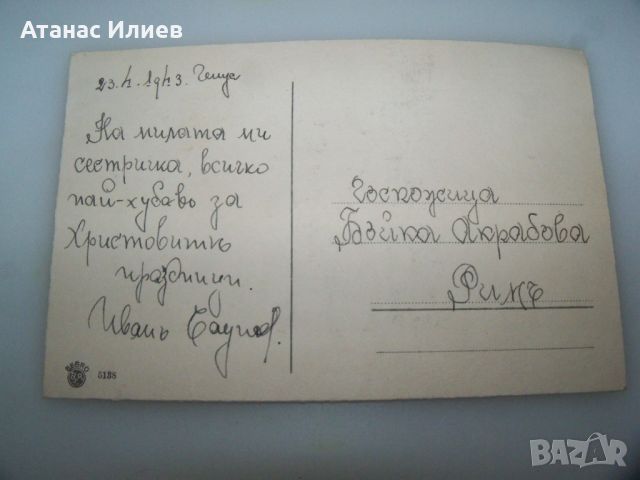 Атанас Илиев
23.4.1943.
На милата ми
сестричка, всичко
най-хубаво за
Христовитѣ
празници.
Иванъ
Госпожица
Бойка Акрабова
Римъ
5138
BAZAR